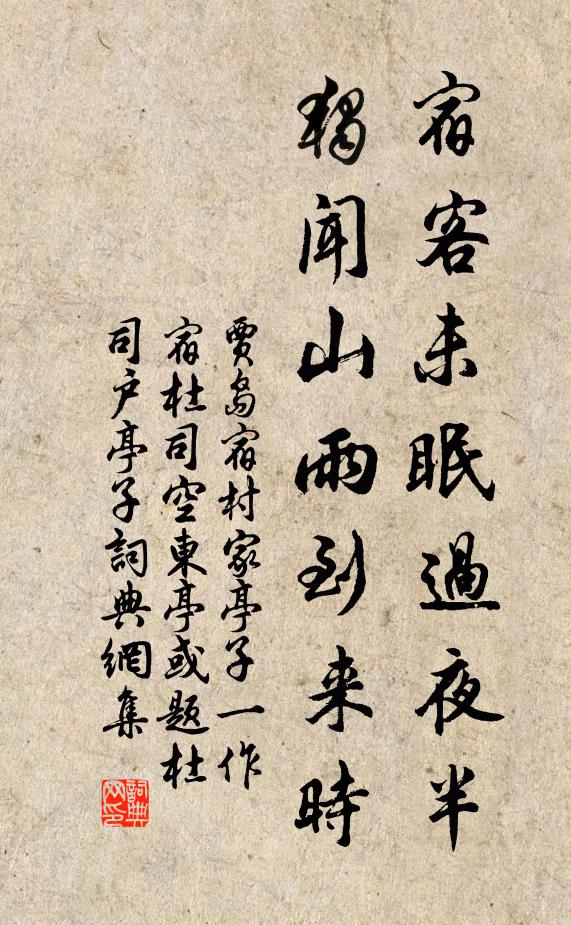 宿客未眠過夜半
獨聞山雨到来時
賈島宿村家亭子一作
宿杜司空東亭或題杜
司戶亭子詞典網集
詞典网印